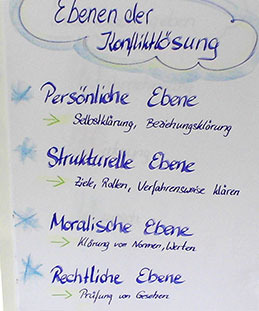 Ebenen der
Konfliktlösung
Persönliche Ebene
→ Selbstklärung, Beziehungsklärung
Strukturelle Ebene
→ Ziele, Rollen, Verfahrensweise klären
Moralische Ebene
→ Klärung von Normen, Werten
Rechtliche Ebene
→ Prüfung von Gesetzen